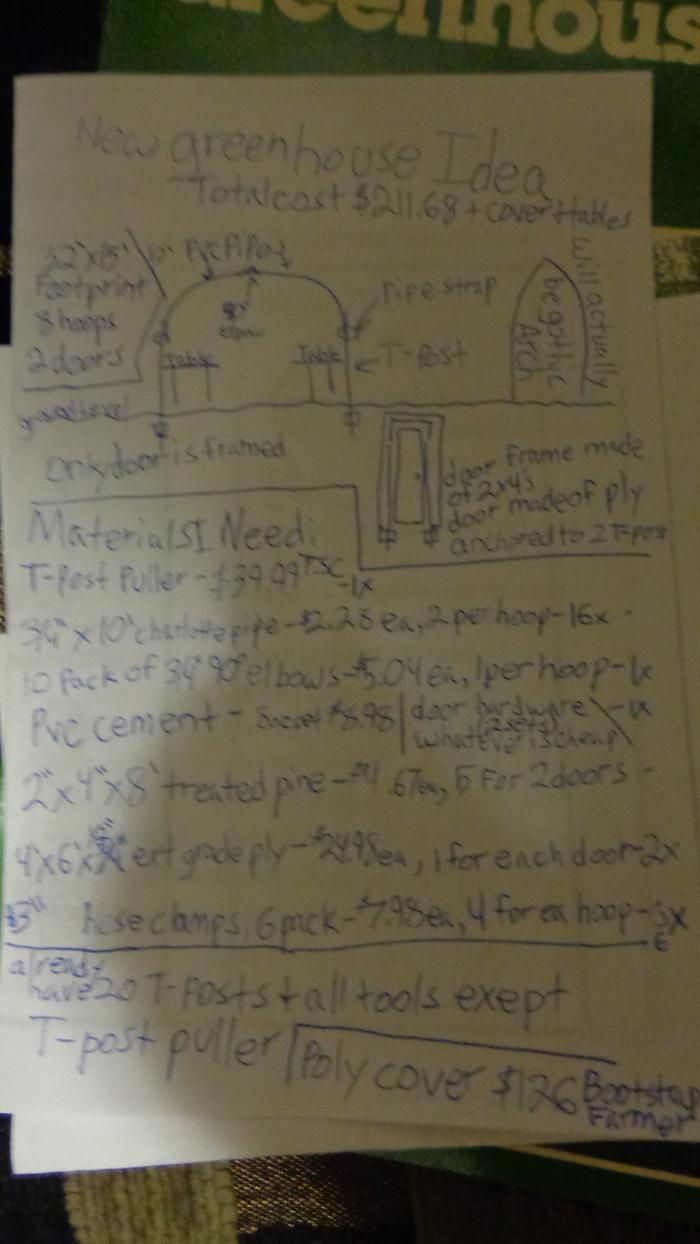 Greenhous
New greenhouse Idea
Total cost $211.68 + cover + tables
Footprint
8 hoops
2 doors
10' PVC Pipe
90°
Table
Table
pipe strap
T-Post
Will actually
be gothic
Arch
ground level
only door is framed
door frame made
of 2x4's
door made of ply
anchored to 2 T-post
Materials I Need:
T-Post Puller - $39.99 TSC -1x
3/4" x 10' charlotte pipe - $2.28 ea, 2 per hoop - 16x
10 Pack of 3/4" 90° elbows - $5.04 ea, 1 per hoop - 1x
PVC cement - $8.98 | door hardware -1x
whatever is cheap
2" x 4" x 8' treated pine - $4.67 ea, 5 For 2 doors -
ext grade ply - $24.98 ea, 1 for each door - 2x
3" hose clamps, 6 pack - $7.98 ea, 4 for ea hoop -
6
already
have 20 T-posts + all tools exept
T-post puller
Poly cover $126 Bootstrap
Farmer